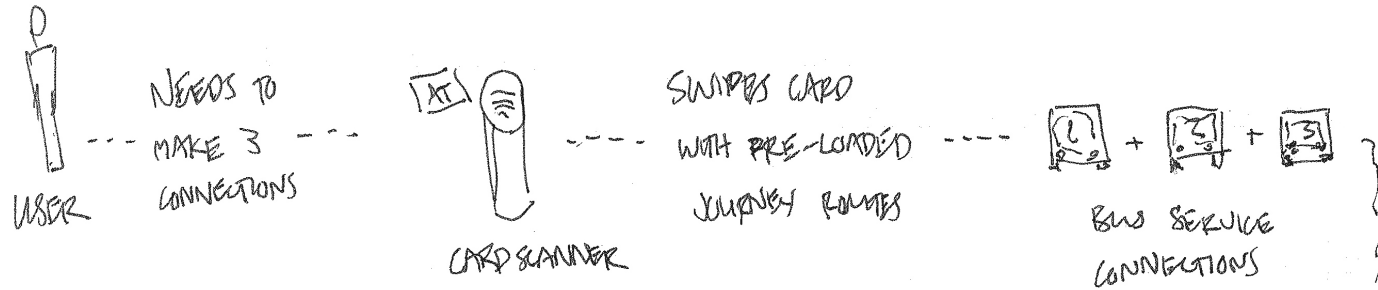 NEEDS TO
MAKE 3
CONNECTIONS
USER
AT
CARD SCANNER
SWIPES CARD
WITH PRE-LOADED
JOURNEY ROUTES
1 + 2 + 3
BUS SERVICE
CONNECTIONS